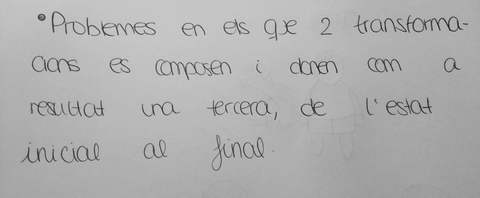 • Problemes en els que 2 transforma-
cions es composen i donen com a
resultat una tercera, de l'estat
inicial al final.